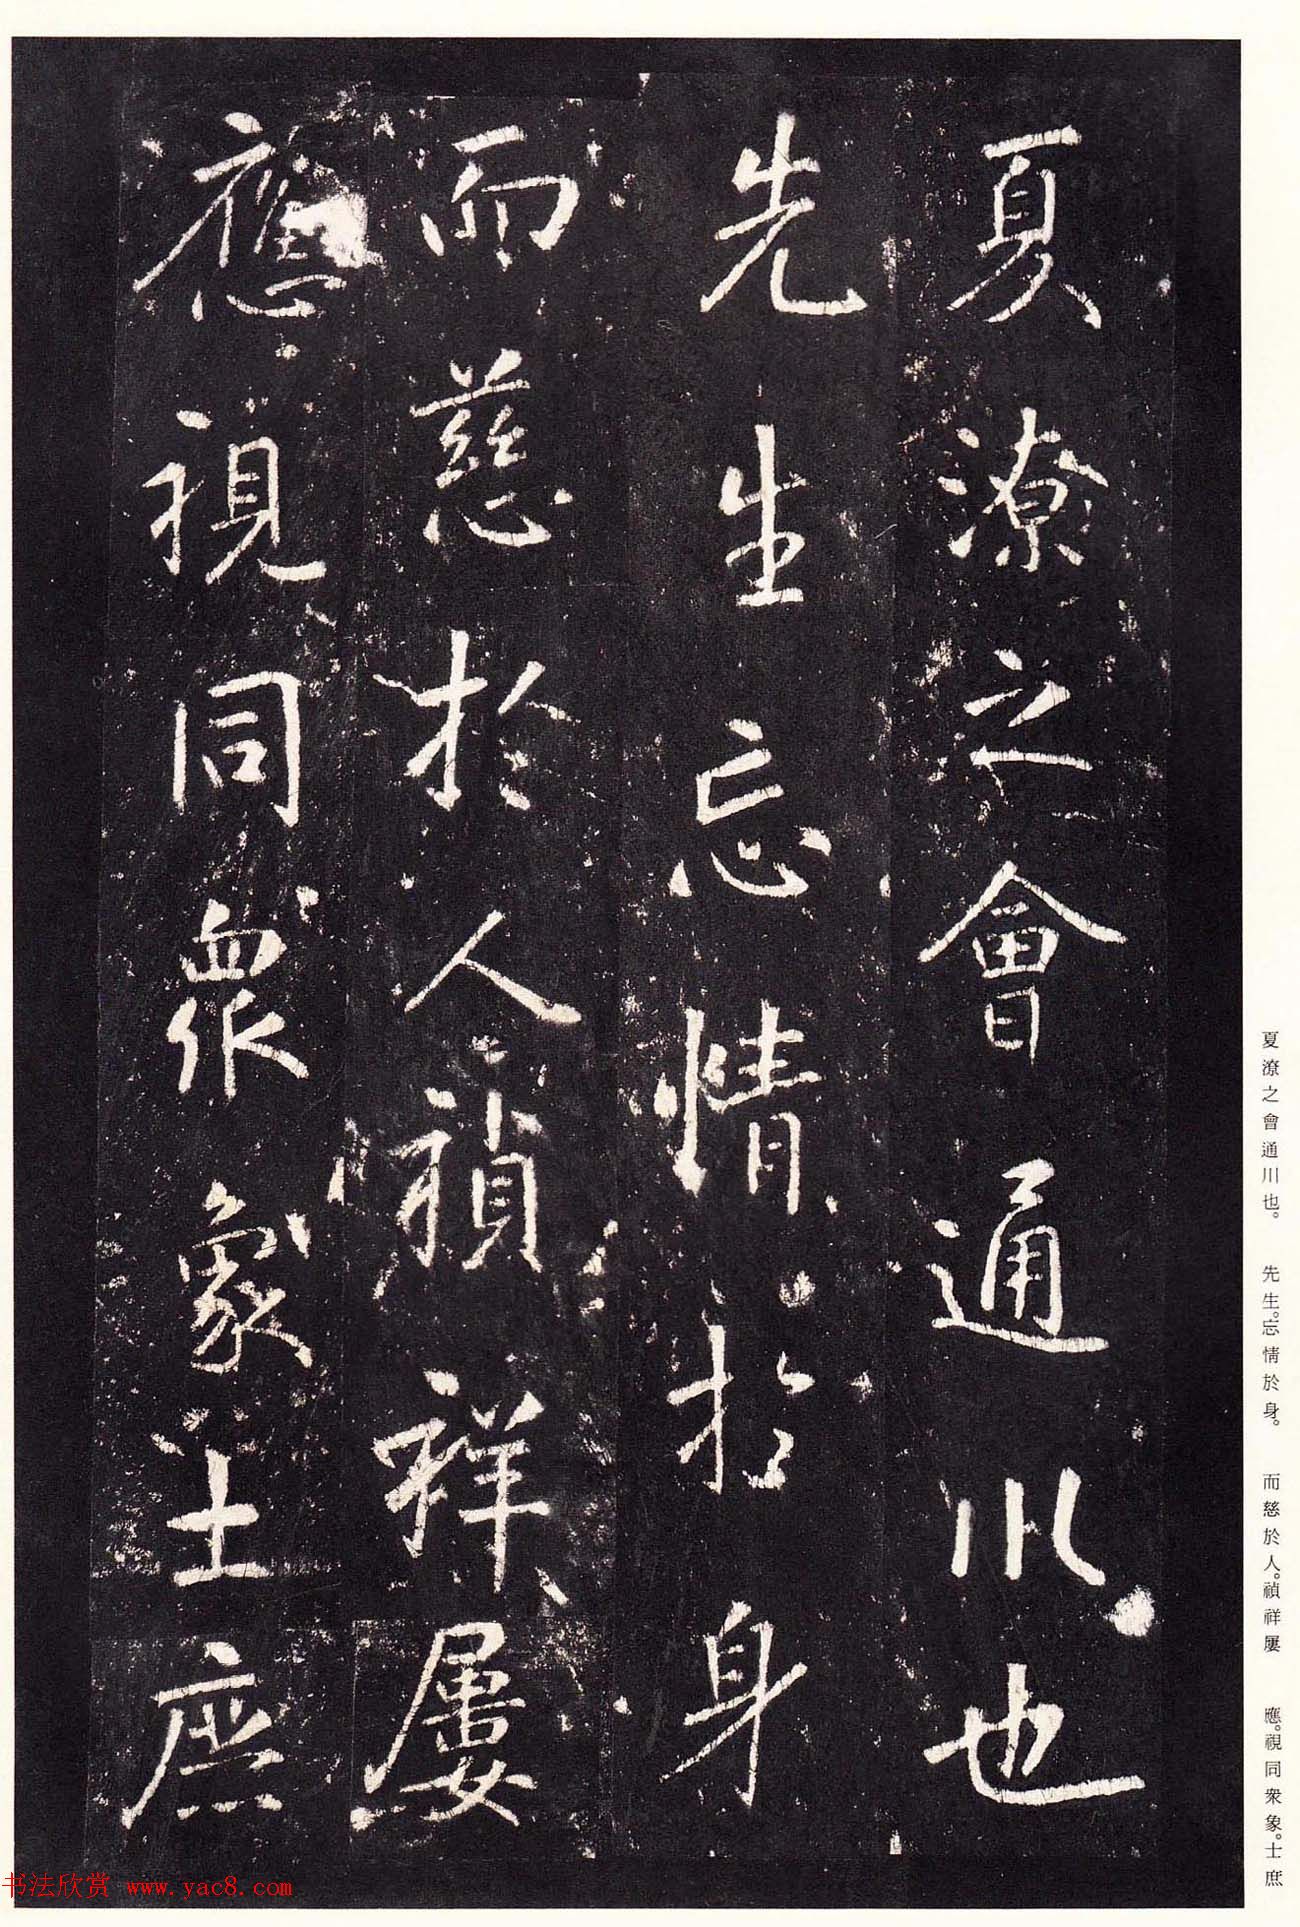 夏潦之會通川也
先生忘情於身
而慈於人禎祥屢
應視同衆象士庶
夏潦之會通川也。　先生。忘情於身。　而慈於人。禎祥屢　應。視同衆象。士庶
书法欣赏 www.yac8.com